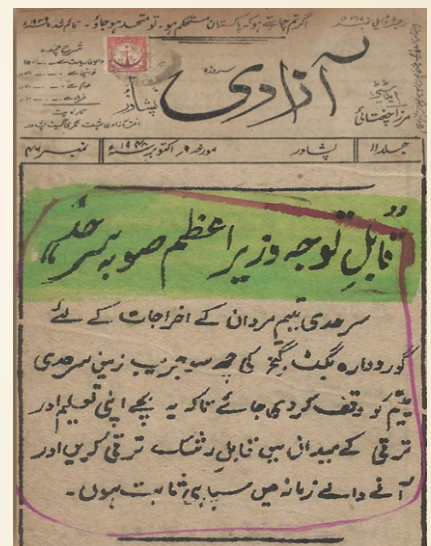 اگر تم چاہتے ہو کہ پاکستان مستحکم ہو۔ تو متحد ہو جاؤ۔
شرح چندہ
سہ روزہ
آزادی
پشاور
ایڈیٹر
مرزا چغتائی
جلد ۱۱
پشاور
مورخہ ۹ اکتوبر ۱۹۴۸ء
نمبر ۴۶
"قابلِ توجہ وزیر اعظم صوبہ سرحد"
سرحدی یتیم مردان کے اخراجات کے لئے
گوردوارہ بگٹ گنج کی چھ سو جریب زمین سرحدی
یتیم کو وقف کر دی جائے تاکہ یہ بچے اپنی تعلیم اور
ترقی کے میدان میں قابلِ رشک ترقی کریں اور
آنے والے زمانہ میں سپاہی ثابت ہوں۔